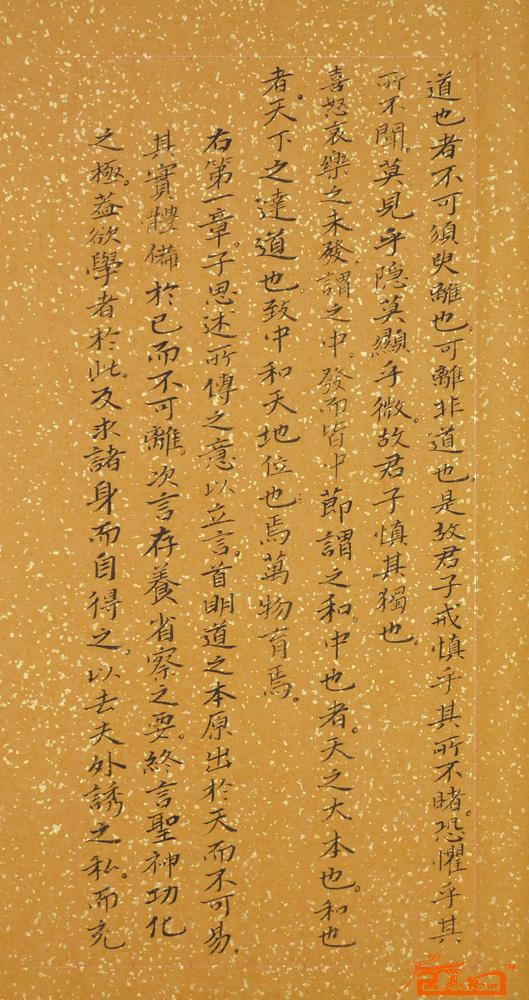 道也者不可須臾離也,可離非道也。是故君子戒慎乎其所不睹。恐懼乎其
所不聞。莫見乎隱莫顯乎微。故君子慎其獨也。
喜怒哀樂之未發,謂之中。發而皆中節謂之和。中也者。天之大本也。和也
者。天下之達道也。致中和天地位也焉萬物育焉。
右第一章。子思述所傳之意以立言。首明道之本原出於天而不可易。
其實體備於已而不可離。次言存養省察之要。終言聖神功化
之極。蓋欲學者於此。反求諸身而自得之。以去夫外誘之私。而充